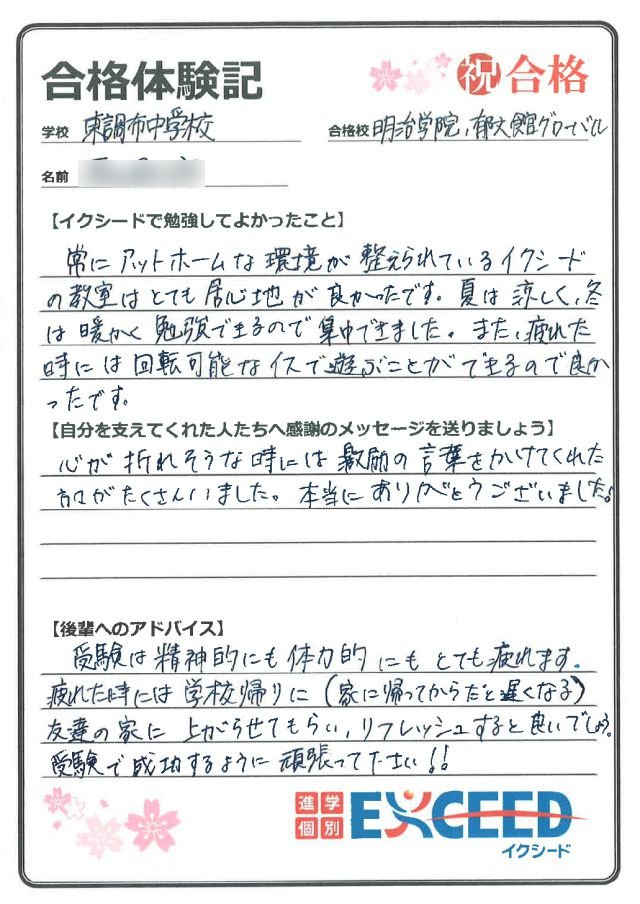 合格体験記
祝 合格
学校 東調布中学校
合格校 明治学院、郁文館グローバル
名前
【イクシードで勉強してよかったこと】
常にアットホームな環境が整えられているイクシード
の教室はとても居心地が良かったです。夏は涼しく、冬
は暖かく勉強できるので集中できました。また、疲れた
時には回転可能なイスで遊ぶことができるので良か
ったです。
【自分を支えてくれた人たちへ感謝のメッセージを送りましょう】
心が折れそうな時には激励の言葉をかけてくれた
方々がたくさんいました。本当にありがとうございました。
【後輩へのアドバイス】
受験は精神的にも体力的にもとても疲れます。
疲れた時には学校帰りに(家に帰ってからだと遅くなる)
友達の家に上がらせてもらい、リフレッシュすると良いでしょう。
受験で成功するように頑張って下さい!!
進学
個別 EXCEED
イクシード